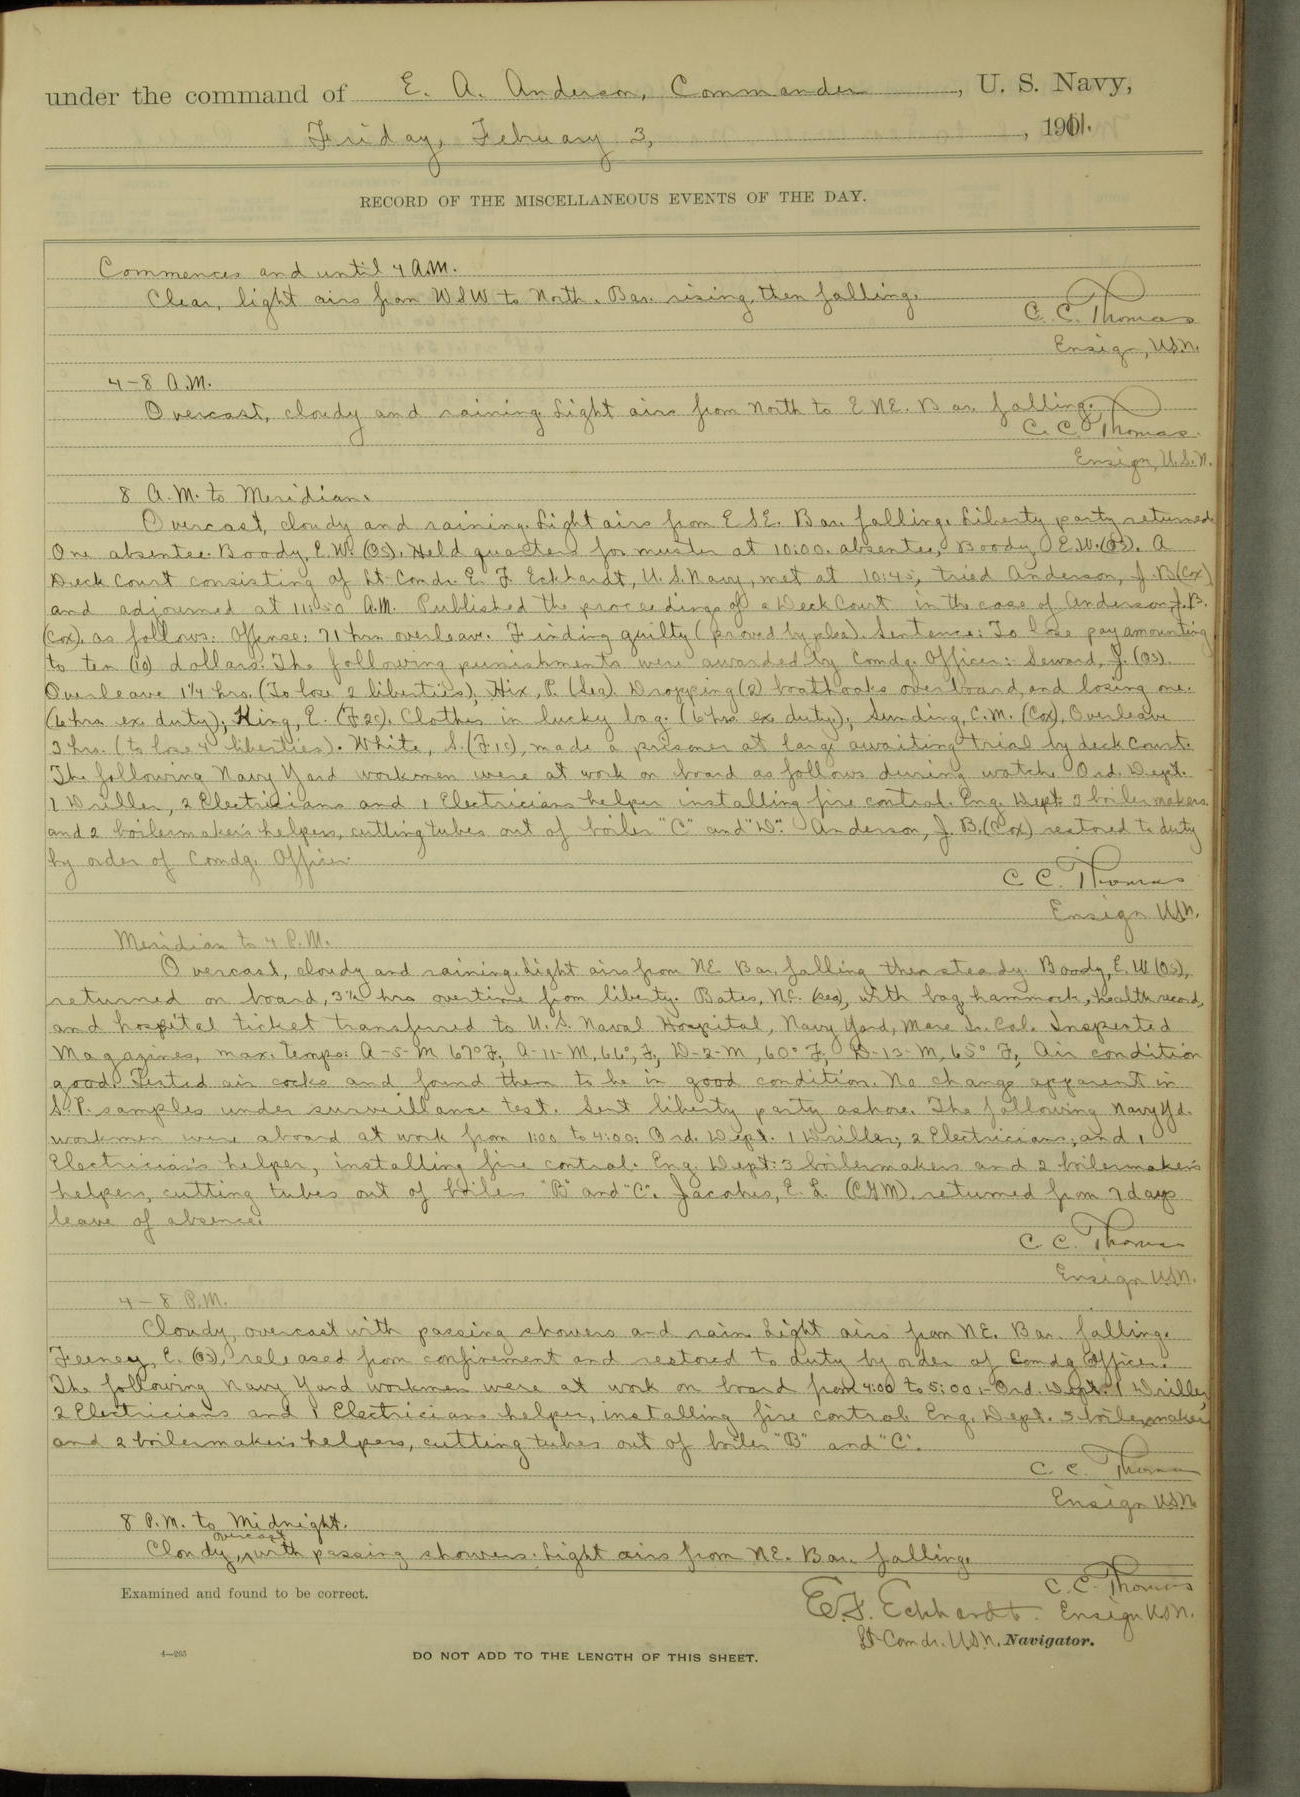 under the command of E. A. Anderson, Commander, U. S. Navy,
Friday, February 3, 1911.
RECORD OF THE MISCELLANEOUS EVENTS OF THE DAY.
Commences and until 4 A.M.
Clear, light airs from WSW to North. Bar. rising, then falling.
C. C. Thomas
Ensign, U.S.N.
4-8 A.M.
Overcast, cloudy and raining. Light airs from North to E NE. Bar. falling.
C. C. Thomas
Ensign, U.S.N.
8 A.M. to Meridian.
Overcast, cloudy and raining. Light airs from ESE. Bar. falling. Liberty party returned
One absentee. Boody E.W. (OS). Held quarters for muster at 10:00. absentee, Boody E.W. (OS). A
Deck Court consisting of Lt-Comdr. E. F. Eckhardt, U.S. Navy, met at 10:45, tried Anderson, J. B (Cox)
and adjourned at 11:50 A.M. Published the proceedings of a Deck Court in the case of Anderson, J.B.
(Cox). as follows: Offense: 71 hrs overleave. Finding guilty (proved by plea). Sentence: To lose pay amounting
to ten (10) dollars. The following punishments were awarded by Comdg. Officer: Seward, J. (OS).
Overleave 1 1/4 hrs. (To lose 2 liberties), Hix, P. (Sea). Dropping (2) boathooks overboard, and losing one.
(6 hrs. ex. duty); King, E. (F2c). Clothes in lucky bag. (6 hrs ex duty); Sunding, C.M. (Cox), Overleave
3 hrs. (to lose 4 liberties). White, S. (F1c), made a prisoner at large awaiting trial by deck court.
The following Navy Yard workmen were at work on board as follows during watch. Ord. Dept.
1 Driller, 2 Electricians and 1 Electricians helper installing fire control. Eng. Dept: 3 boilermakers
and 2 boilermaker's helpers, cutting tubes out of boiler "C" and "D". Anderson, J. B. (Cox) restored to duty
by order of Comdg. Officer.
C C. Thomas
Ensign U.S.N.
Meridian to 4 P.M.
Overcast, cloudy and raining. Light airs from NE Bar. falling then steady. Boody, E. W. (OS),
returned on board, 3 1/2 hrs overtime from liberty. Bates, N.C. (Sea), with bag, hammock, health record,
and hospital ticket transferred to U. S. Naval Hospital, Navy Yard, Mare Is. Cal. Inspected
Magazines, max. temps: A-5-M 67° F, A-11-M, 66°, F, D-2-M, 60° F, D-13-M, 65° F, Air condition
good. Tested air cocks and found them to be in good condition. No change apparent in
S.P. samples under surveillance test. Sent liberty party ashore. The following Navy Yd.
workmen were aboard at work from 1:00 to 4:00: Ord. Dept. 1 Driller, 2 Electricians, and 1
Electrician's helper, installing fire control. Eng. Dept: 3 boilermakers and 2 boilermaker's
helpers, cutting tubes out of boiler "B" and "C". Jacobs, E. L. (CGM). returned from 7 days
leave of absence.
C C. Thomas
Ensign U.S.N.
4-8 P.M.
Cloudy, overcast with passing showers and rain. Light airs from NE. Bar. falling.
Feeney, E. (OS), released from confinement and restored to duty by order of Comdg Officer.
The following Navy Yard workmen were at work on board from 4:00 to 5:00:- Ord. Dept. 1 Driller,
2 Electricians and 1 Electricians helper, installing fire control. Eng. Dept. 3 boilermakers
and 2 boilermaker's helpers, cutting tubes out of boiler "B" and "C".
C. C. Thomas
Ensign U.S.N.
8 P.M. to Midnight.
Cloudy, overcast with passing showers. Light airs from NE. Bar. falling.
C. C. Thomas
Ensign U.S.N.
Examined and found to be correct.
E. F. Eckhardt.
Lt-Comdr. U.S.N. Navigator.
4—265
DO NOT ADD TO THE LENGTH OF THIS SHEET.